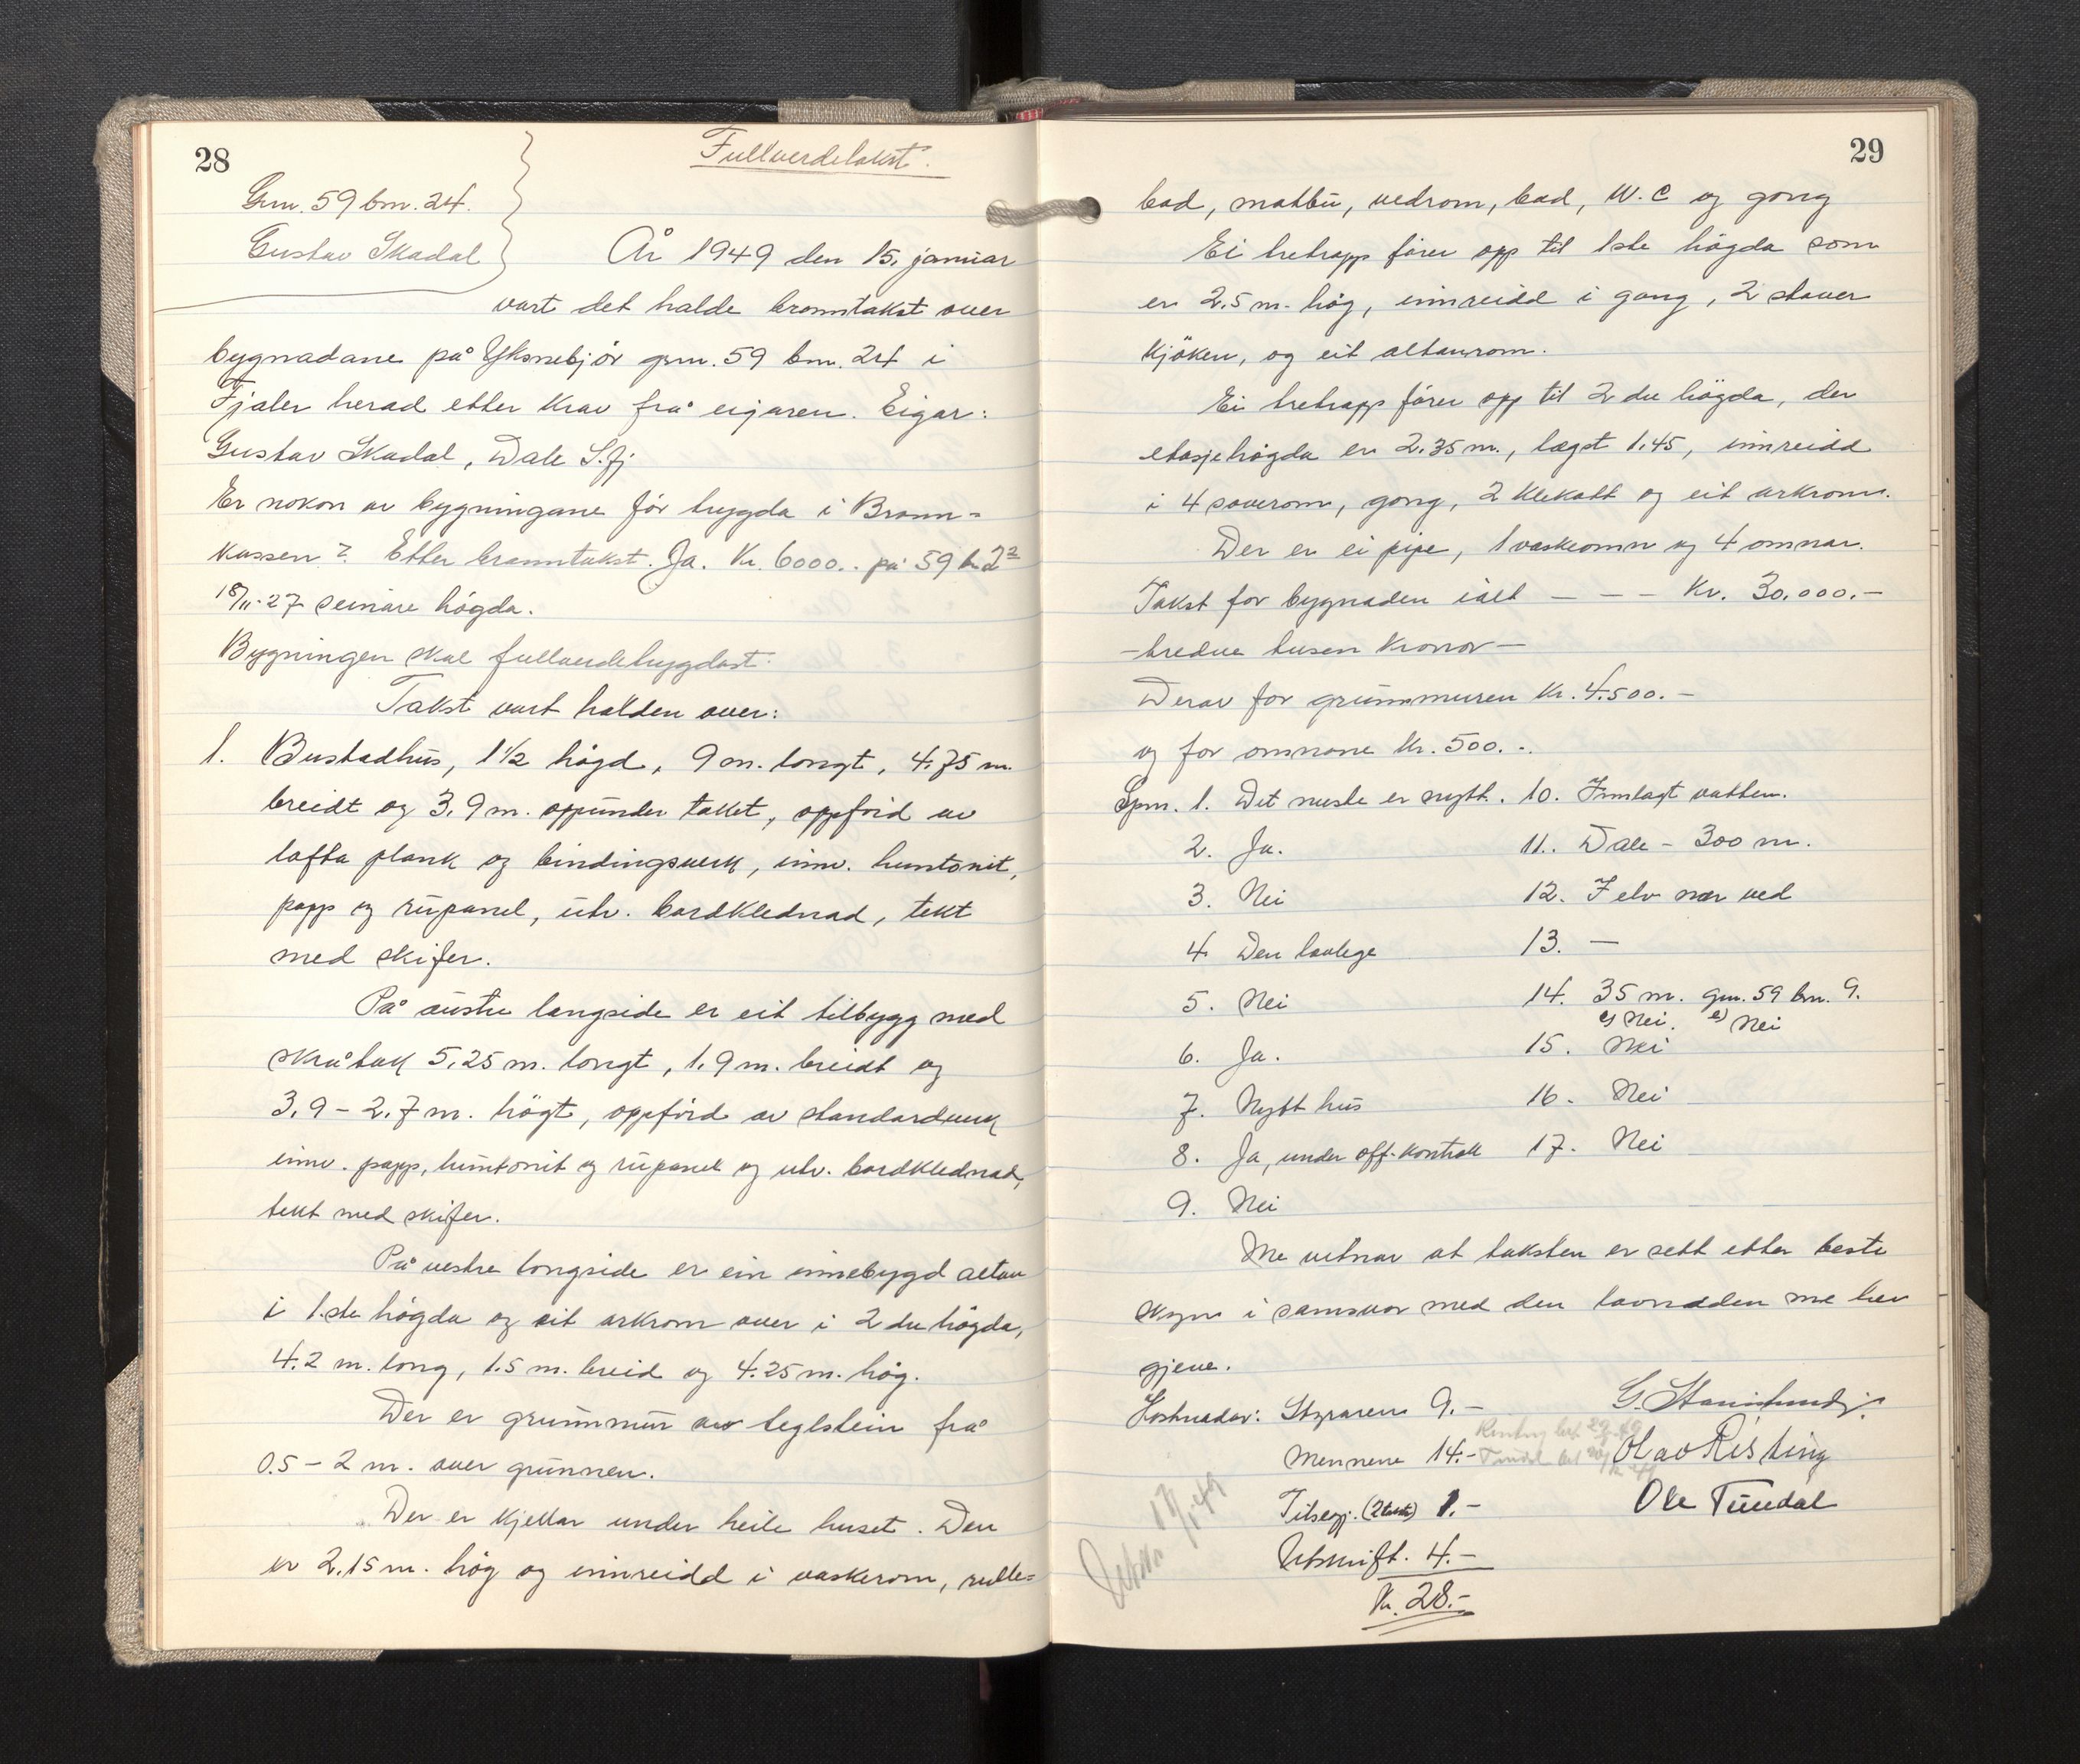 28
Fullverdetakst.
Gnr. 59 bnr. 24.
Gustav Skadal
År 1949 den 15. januar
vart det halde branntakst over
bygnadane på Yksnebjör gnr. 59 bnr. 24 i
Fjaler herad etter krav frå eigaren. Eigar:
Gustav Skadal, Dale S.fj
Er nokon av bygningane før trygda i Brann-
kassen? Etter branntakst. Ja. Kr. 6000.. på 59 b 2
18/11-27 seinare högda.
Bygningen skal fullverdetrygdast.
Takst vart halden over:
1. Bustadhus, 1½ högd, 9 m. langt, 4,75 m.
breidt og 3,9 m. oppunder taket, oppförd av
lafta plank og bindingsverk, innv. huntonit,
papp og rupanel, utv. bordklednad, tekt
med skifer.
På austre langside er eit tilbygg med
skråtak 5,25 m. langt, 1,9 m. breidt og
3,9 – 2,7 m. högt, oppförd av standardverk
innv. papp, huntonit og rupanel og utv. bordklednad,
tekt med skifer.
På vestre langside er ein innebygd altan
i 1.ste högda og eit arkrom over i 2 du högda,
4.2 m. lang, 1.5 m. breid og 4.25 m. høg.
Der er grunnmur av teglstein frå
0.5 – 2 m. over grunnen.
Der er kjellar under heile huset. Den
er 2,15 m. høg og innreidd i vaskerom, rulle=
29
bad, matbu, vedrom, bad, W.C og gong
Ei tretrapp förer opp til 1ste högda som
er 2,5 m. høg, innreidd i gang, 2 stover
kjöken, og eit altanrom.
Ei tretrapp förer opp til 2 du högda, der
etasjehögda er 2.35 m., lægst 1.45, innreidd
i 4 soverom, gong, 2 klekott og eit arkrom.
Der er ei pipe, 1 vaskeomn og 4 omnar.
Takst for bygnaden ialt – – – Kr. 30.000.–
– tredve tusen kronor –
Derav for grunnmuren Kr. 4.500.–
og for omnane Kr. 500.-.
Spm. 1. Det meste er nytt. 10. Innlagt vatten.
2. Ja. 11. Dale – 300 m.
3. Nei 12. I elv nær ved
4. Den lovlege 13. –
5. Nei 14. 35 m. gnr. 59 bnr. 9.
c) Nei. e) Nei
6. Ja. 15. Nei
7. Nytt hus 16. Nei
8. Ja, under off. kontroll 17. Nei
9. Nei
Me vitnar at taksten er sett etter beste
skyn i samsvar med den lovnaden me hev
gjeve.
Kostnader: Styraren 9.–
Mennene 14.– Olav Risting
Tilsegj. (2 takst) 1.– Ole Tundal
Utskrift. 4.–
Kr. 28.–
17/1-49